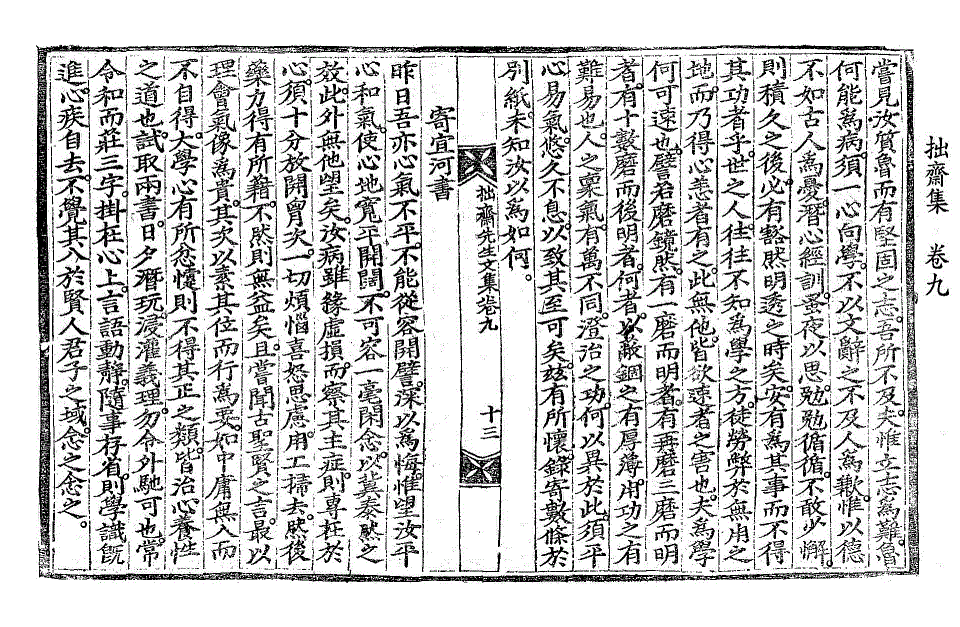 拙齋集 卷九
嘗見汝質魯而有堅固之志。吾所不及。夫惟立志爲難。魯
何能爲病。須一心向學。不以文辭之不及人爲歉。惟以德
不如古人爲憂。潛心經訓。蚤夜以思。勉勉循循。不敢少懈。
則積久之後。必有豁然明透之時矣。安有爲其事而不得
其功者乎。世之人。往往不知爲學之方。徒勞弊於無用之
地。而乃得心恙者有之。此無他。皆欲速者之害也。夫爲學
何可速也。譬若磨鏡然。有一磨而明者。有再磨三磨而明
者。有十數磨而後明者。何者。以蔽錮之有厚薄。用功之有
難易也。人之稟氣。有萬不同。澄治之功。何以異於此。須平
心易氣。悠久不息。以致其至可矣。玆有所懷。錄寄數條於
別紙。未知汝以爲如何。
拙齋先生文集卷九 十三
寄宜河書
昨日吾亦心氣不平。不能從容開譬。深以爲悔。惟望汝平
心和氣。使心地寬平開闊。不可容一毫閑念。以冀泰然之
效。此外無他望矣。汝病雖緣虛損。而察其主症。則專在於
心。須十分放開胷次。一切煩惱喜怒思慮。用工掃去。然後
藥力得有所藉。不然則無益矣。且嘗聞古聖賢之言。最以
理會氣像爲貴。其次以素其位而行爲要。如中庸無入而
不自得。大學心有所忿懥則不得其正之類。皆治心養性
之道也。試取兩書。日夕潛玩。浸灌義理。勿令外馳可也。常
令和而莊三字掛在心上。言語動靜。隨事存省。則學識旣
進。心疾自去。不覺其入於賢人君子之域。念之念之。